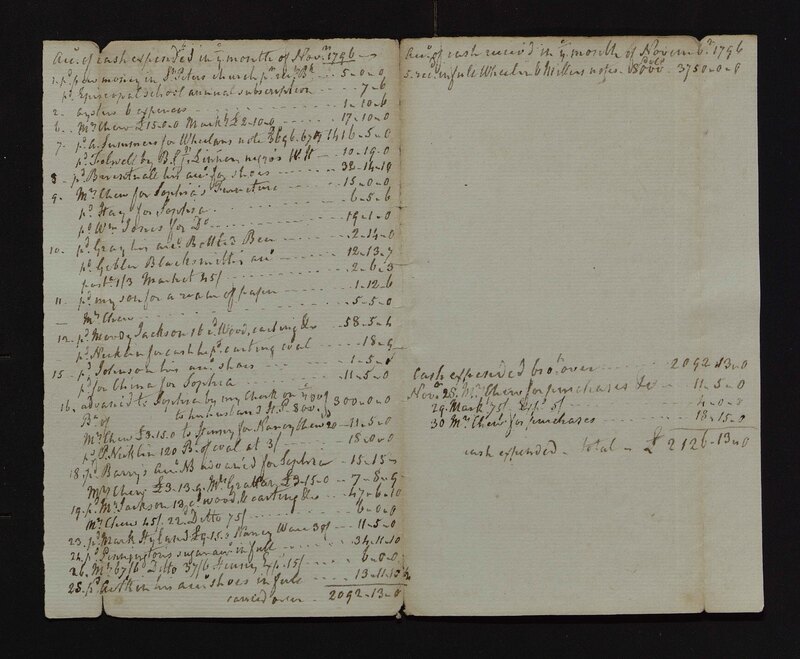 Acct. of cash expended in ye month of Novr. 1796
1. pd pew money in St Peters church pr 5-0-0
pd Episcopal school annual subscription 7-6
2. oysters & expences 1-10-6
6. Mrs Chew £15-0-0 Markt £2-10-0 17-10-0
7. pd for Wheelans note 1416-5-0
pd Folwell by B. & J. 10-19-0
8. pd his acct. for shoes 32-14-10
9. Mrs Chew for Sophia's Furniture 15-0-0
pd Hay for Sophia 6-5-6
pd Wm. Jones for Do 19-1-0
10. pd Gray his acct. Bottled Beer 2-14-0
pd Gebler Blacksmiths acct 12-13-7
1/3 Market 45/ 2-6-3
11. pd my son for a ream of paper 1-12-6
Mrs Chew 5-5-0
12. pd Moody Jackson 16 cd Wood, carting &c 58-5-4
pd Nicklin for cash he pd carting coal 18-9
15. pd Johnson his acct. shoes 1-5-0
pd for China for Sophia 11-5-0
16. advanced to Sophia by my check on
Bk of 300-0-0
Mrs Chew £3-15-0 to Henny for Nancy Chew 11-5-0
pd P. Nicklin 120 Bs. of coal at 3/ 18-0-0
18. pd Barry's acct. NB advanced for Sophia 15-15-
Mrs Chew £3-13-9 Mrs Grattan £3-15-0 7-8-9
19. pd Mr Jackson 13 cd wood & carting &c 47-6-10
Mrs Chew 45/ 22. Ditto 75/ 6-0-0
23. pd Mark Hyland £9-15-s Nancy Ware 30/ 11-5-0
24. pd Penningtons sugar acct in full 34-11-10
26. Mrs 67/6 Ditto 37/6 Henny 15/ 6-0-0
25. pd Aitkin his acct shoes in full 13-11-10
carried over 2092-13-0
Acct. of cash received in ye month of Novembr. 1796
5. recd in full Wheelen & Millers notes 3750-0-0
Cash expended brot. over 2092-13-0
Novr. 25. Mrs Chew for purchases &c 11-5-0
29. Markt 75/ 5/ 4-0-0
30 Mrs Chew for purchases 18-15-0
cash expended - total - £ 2126-13-0